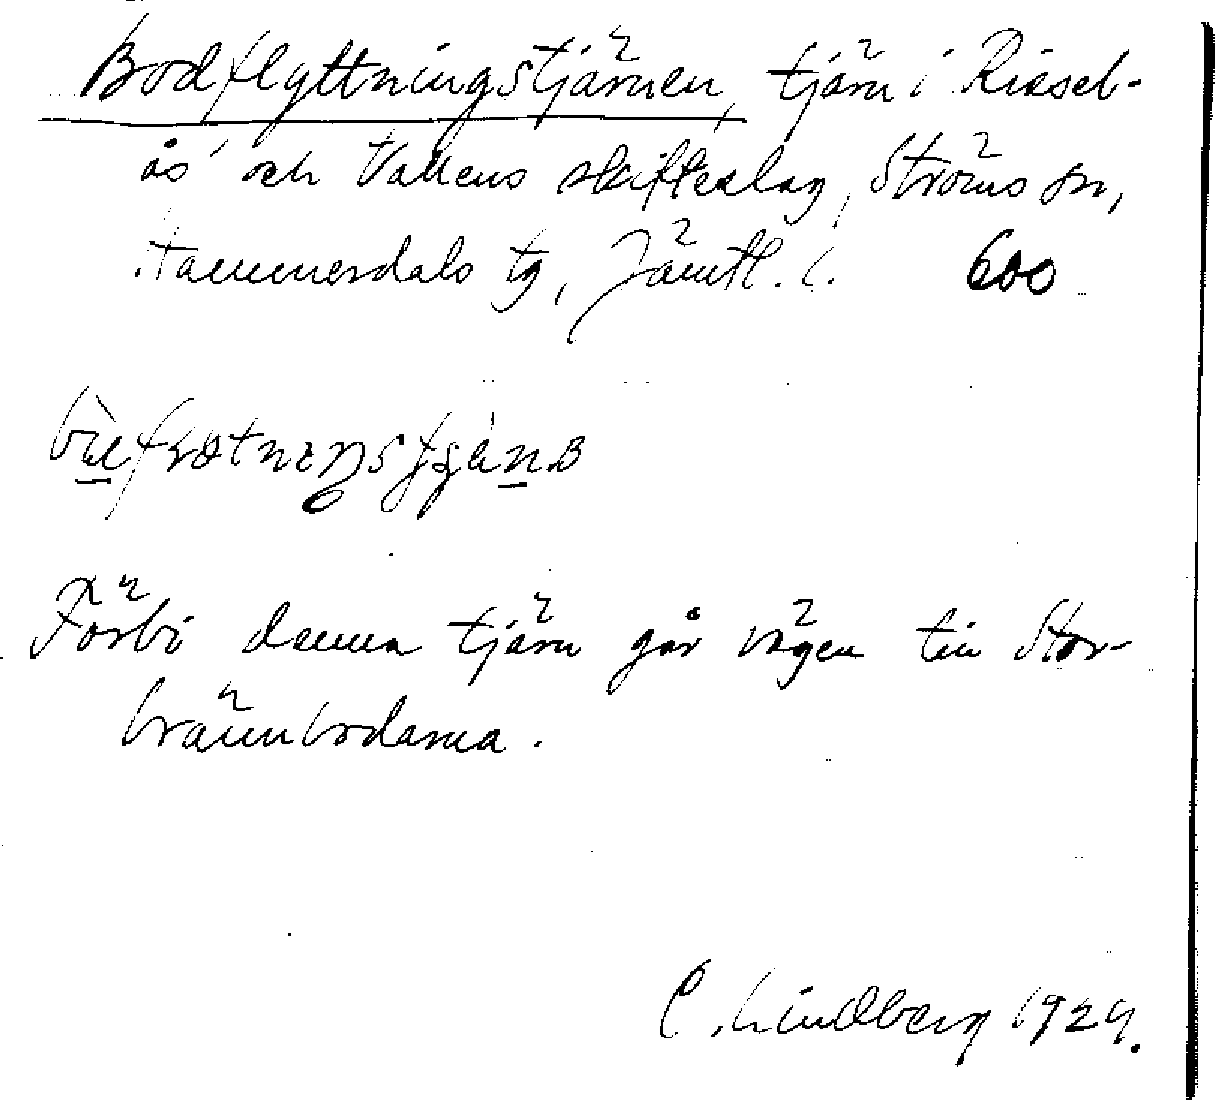 Bodflyttningstjärnen, tjärn i Rissel-
ås och Vallens skifteslag, Ströms sn,
Hammerdals tg, Jämtl. l. 600
Förbi denna tjärn går vägen till Stor-
brännbodarna.
C. Lindberg 1929.